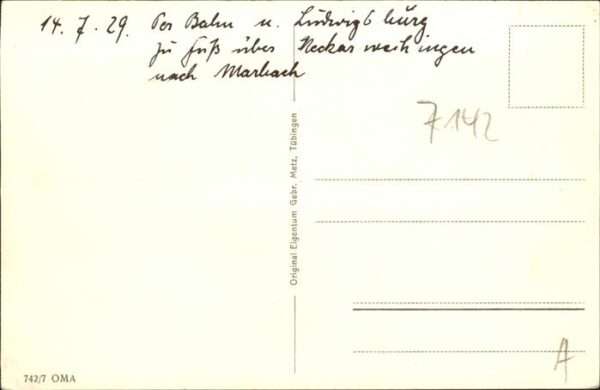 14. 7. 29. Per Bahn n. Ludwigsburg
zu Fuß über Neckarweihingen
nach Marbach
7142
Original Eigentum Gebr. Metz, Tübingen
A
742/7 OMA